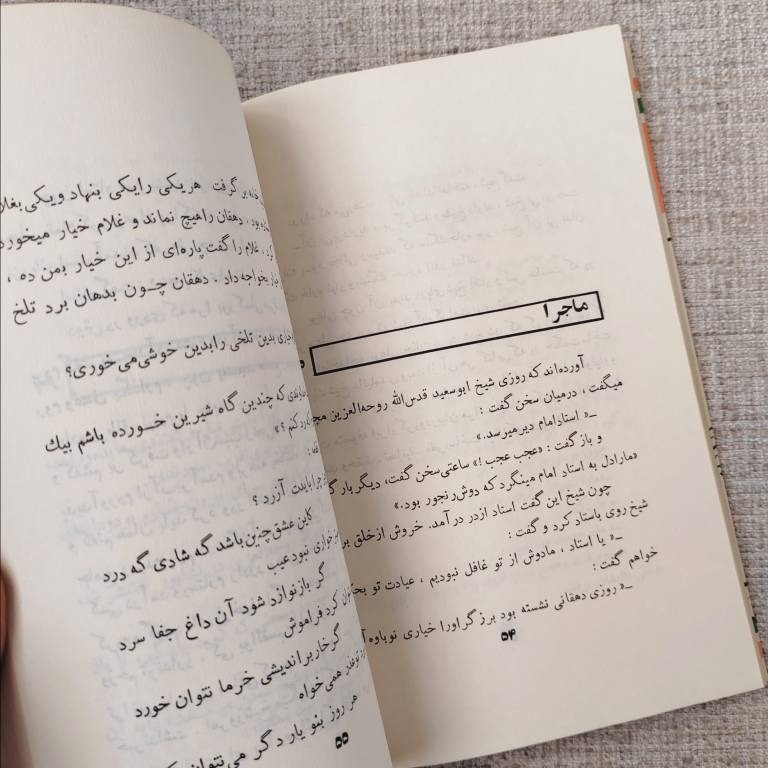 ماجرا
آورده‌اند که روزی شیخ ابوسعید قدس‌الله روحه‌العزیز
میگفت، درمیان سخن گفت :
ـ« استاد امام دیر میرسد.»
و باز گفت: «عجب عجب !» ساعتی سخن گفت، دیگر بار
«مارادل به استاد امام مینگرد که دوش رنجور بود.»
چون شیخ این گفت استاد ازدر در آمد. خروش ازخلق بر
شیخ روی باستاد کرد و گفت :
ـ« یا استاد ، مادوش از تو غافل نبودیم ، عیادت تو
خواهم گفت :
ـ« روزی دهقانی نشسته بود برزگر اورا خیاری نوباوه
۵۴
بر گرفت هریکی رایکی بنهاد ویکی
بود. دهقان راهیچ نماند و غلام خیار میخورد
غلام را گفت پاره‌ای از این خیار بمن ده ،
بخواجه داد . دهقان چـون بدهان برد تلخ
بدین تلخی رابدین خوشی می‌خوری؟
که چندین گاه شیرین خـورده باشم بیك
رد کنم ؟»
چرا بایدت آزرد ؟
کاین عشق چنین باشد گه شادی گه درد
خواری نبود عیب
گر بازنوازد شود آن داغ جفا سرد
کرد فراموش
گرخار بر اندیشی خرما نتوان خورد
همی خواه
هر روز بنو یار دگر می‌نتوان
۵۵